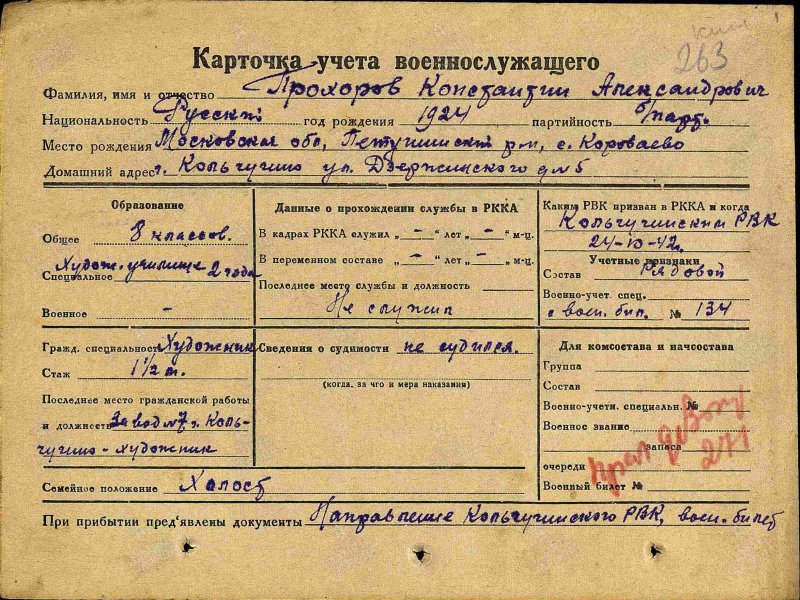 263
Карточка учета военнослужащего
Фамилия, имя и отчество Прохоров Константин Александрович
Национальность Русский год рождения 1924 партийность б/парт.
Место рождения Московская обл, Петушинский р-н, с. Короваево
Домашний адрес г. Кольчугино ул. Дзержинского д № 5
Образование
Общее 8 классов.
Специальное Худож. училище 2 года
Военное -
Данные о прохождении службы в РККА
В кадрах РККА служил „ - " лет „ - " м-ц.
В переменном составе „ - " лет „ - " м-ц.
Последнее место службы и должность
Не служил
Каким РВК призван в РККА и когда
Кольчугинским РВК
24-10-42
Учетные признаки
Состав Рядовой
Военно-учет. спец.
с воен. бил. № 134
Гражд. специальность Художник
Стаж 1 1/2 г.
Последнее место гражданской работы
и должность завод №7 г. Коль-
чугино - художник
Сведения о судимости не судился.
(когда, за что и мера наказания)
Для комсостава и начсостава
Группа
Состав
Военно-учетн. специальн. №
Военное звание
запаса
очереди
Военный билет №
271
Семейное положение Холост
При прибытии пред'явлены документы Направление Кольчугинского РВК, воен. билет